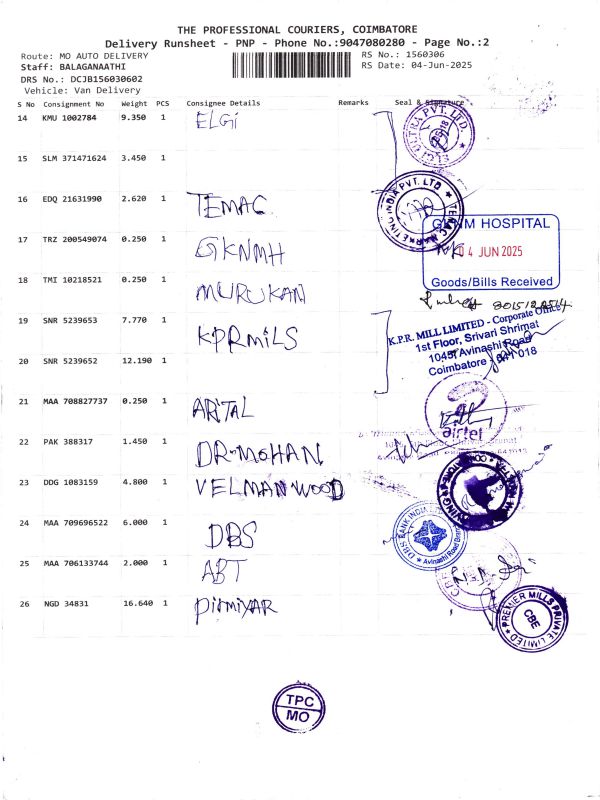 THE PROFESSIONAL COURIERS, COIMBATORE
Delivery Runsheet - PNP - Phone No.:9047080280 - Page No.:2
Route: MO AUTO DELIVERY
RS No.: 1560306
Staff: BALAGANAATHI
RS Date: 04-Jun-2025
DRS No.: DCJB156030602
Vehicle: Van Delivery
S No Consignment No Weight PCS Consignee Details Remarks Seal & Signature
14 KMU 1002784 9.350 1 ELGi
15 SLM 371471624 3.450 1
16 EDQ 21631990 2.620 1 TEMAC
TEMAC MARKETING INDIA PVT. LTD
17 TRZ 200549074 0.250 1 GKNMH
HOSPITAL
04 JUN 2025
Goods/Bills Received
18 TMI 10218521 0.250 1 MURUKAN
19 SNR 5239653 7.770 1 KPRMiLS
K.P.R. MILL LIMITED - Corporate Office
1st Floor, Srivari Shrimat
1045, Avinashi Road
Coimbatore 018
20 SNR 5239652 12.190 1
21 MAA 708827737 0.250 1 ARTAL
airtel
22 PAK 388317 1.450 1 DR-MOHAN
23 DDG 1083159 4.800 1 VELMANWOOD
24 MAA 709696522 6.000 1 DBS
DBS BANK INDIA
Avinashi Road
25 MAA 706133744 2.000 1 ABT
26 NGD 34831 16.640 1
PREMIER MILLS PRIVATE LIMITED
CBE
TPC
MO